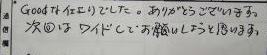 通信欄
Goodな仕上りでした。ありがとうございます。
次回は ワイドしてお願いしようと思います。